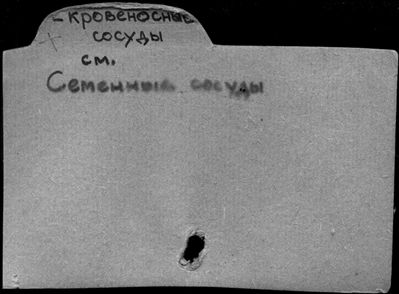 - кровеносные
сосуды
см.
Семенные сосуды